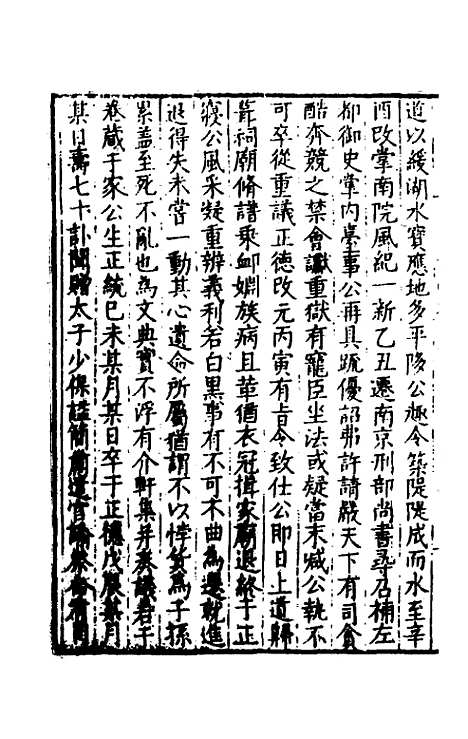 道以緩湖水寶應地多平陽公趣令築隄隄成而水至辛
酉改掌南院風紀一新乙丑遷南京刑部尚書尋召補左
都御史掌內臺事公再具疏優詔弗許請嚴天下有司貪
酷奔競之禁會讞重獄有寵臣坐法或疑當末減公執不
可卒從重議正德改元丙寅有旨令致仕公即日上道歸
葺祠廟脩譜乘卹婣族病且革猶衣冠揖家廟退終于正
寢公風采凝重辨義利若白黑事有不可不曲為遷就進
退得失未嘗一動其心遺命所屬猶謂不以悖貨為子孫
累蓋至死不亂也為文典實不浮有介軒集并奏議若干
卷藏于家公生正統己未某月某日卒于正德戊辰某月
某日壽七十訃聞贈太子少保諡簡肅遣官諭祭